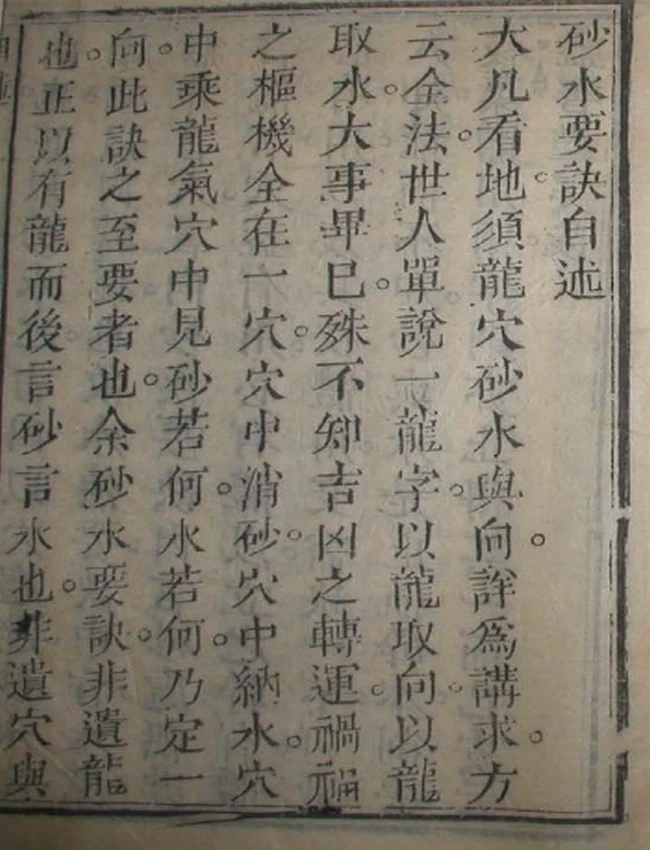 砂水要訣自述
大凡看地須龍穴砂水與向。詳為講求。方
云全法。世人單說一龍字。以龍取向。以龍
取水。大事畢已。殊不知吉凶之轉運。禍福
之樞機。全在一穴。穴中消砂。穴中納水。穴
中乘龍氣。穴中見砂若何。水若何。乃定一
向。此訣之至要者也。余砂水要訣。非遺龍
也。正以有龍而後言砂言水也。非遺穴與